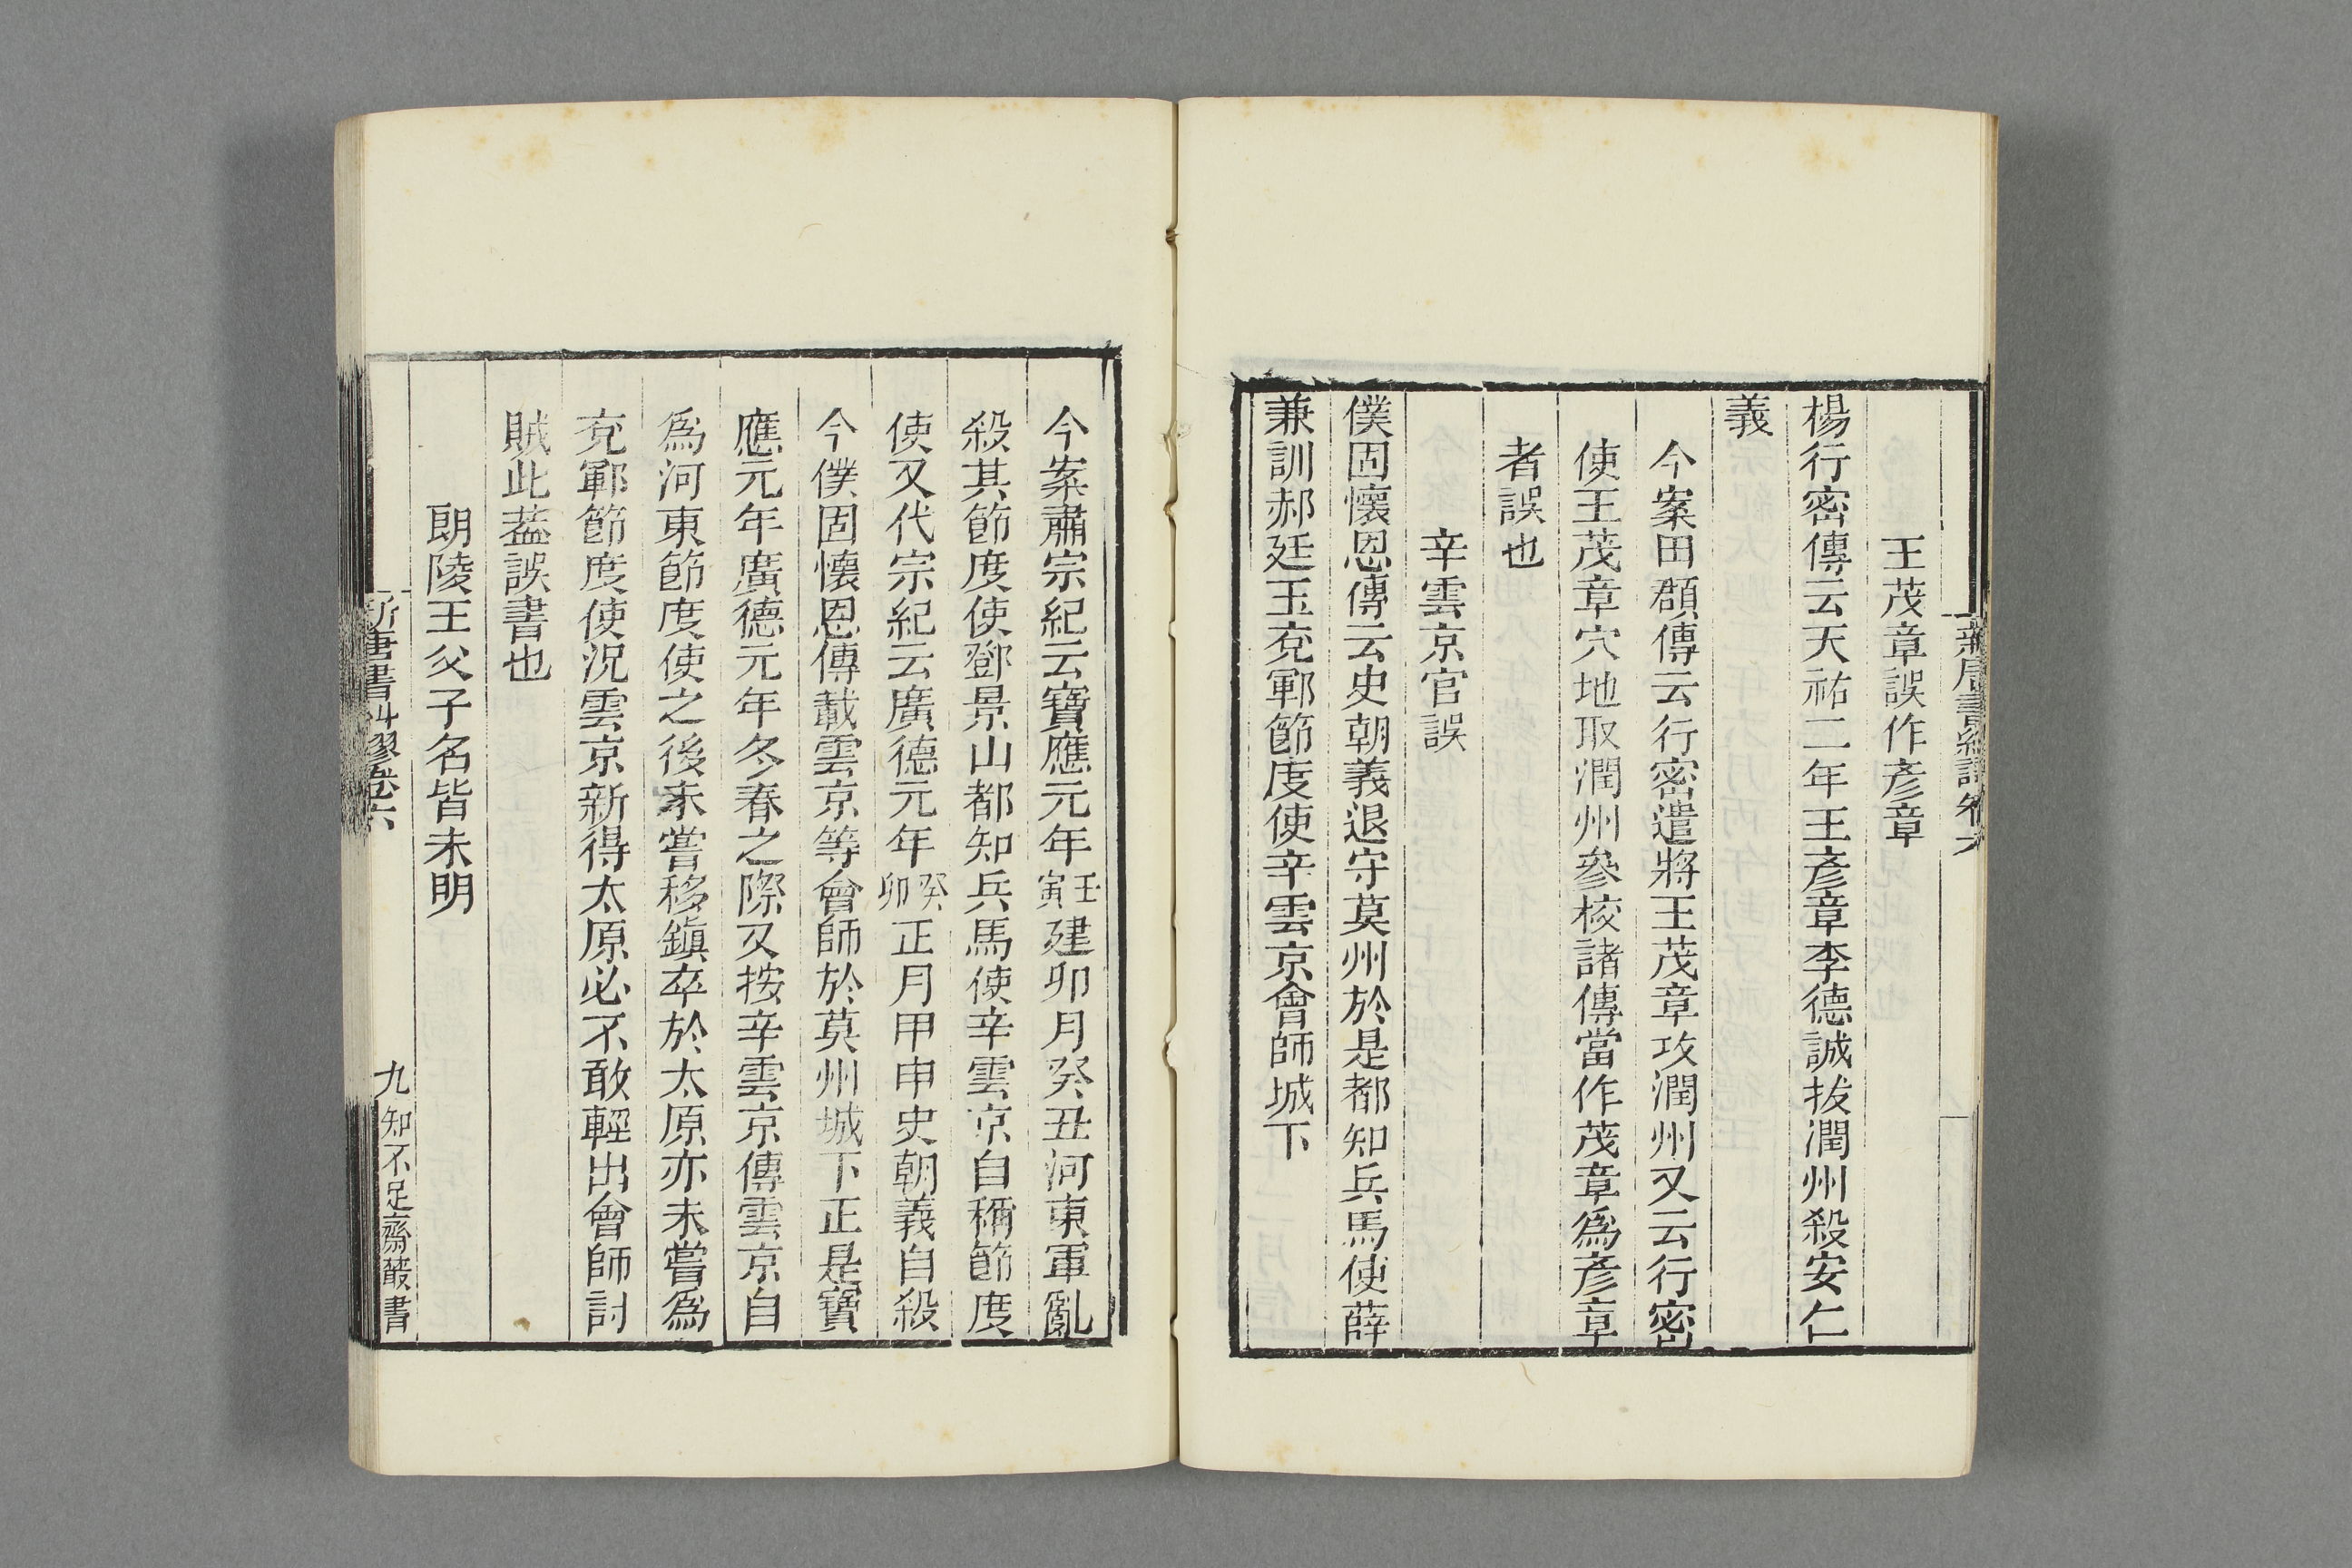 新唐書糾謬卷六
王茂章誤作彥章
楊行密傳云天祐二年王彥章李德誠拔潤州殺安仁
義
今案田頵傳云行密遣將王茂章攻潤州又云行密
使王茂章穴地取潤州參校諸傳當作茂章爲彥章
者誤也
辛雲京官誤
僕固懷恩傳云史朝義退守莫州於是都知兵馬使薛
兼訓郝廷玉兖鄆節度使辛雲京會師城下
今案肅宗紀云寶應元年壬寅建卯月癸丑河東軍亂
殺其節度使鄧景山都知兵馬使辛雲京自稱節度
使又代宗紀云廣德元年癸卯正月甲申史朝義自殺
今僕固懷恩傳載雲京等會師於莫州城下正是寶
應元年廣德元年冬春之際又按辛雲京傳雲京自
爲河東節度使之後未嘗移鎮卒於太原亦未嘗爲
兖鄆節度使況雲京新得太原必不敢輕出會師討
賊此葢誤書也
朗陵王父子名皆未明
新唐書糾謬卷六
九
知不足齋叢書